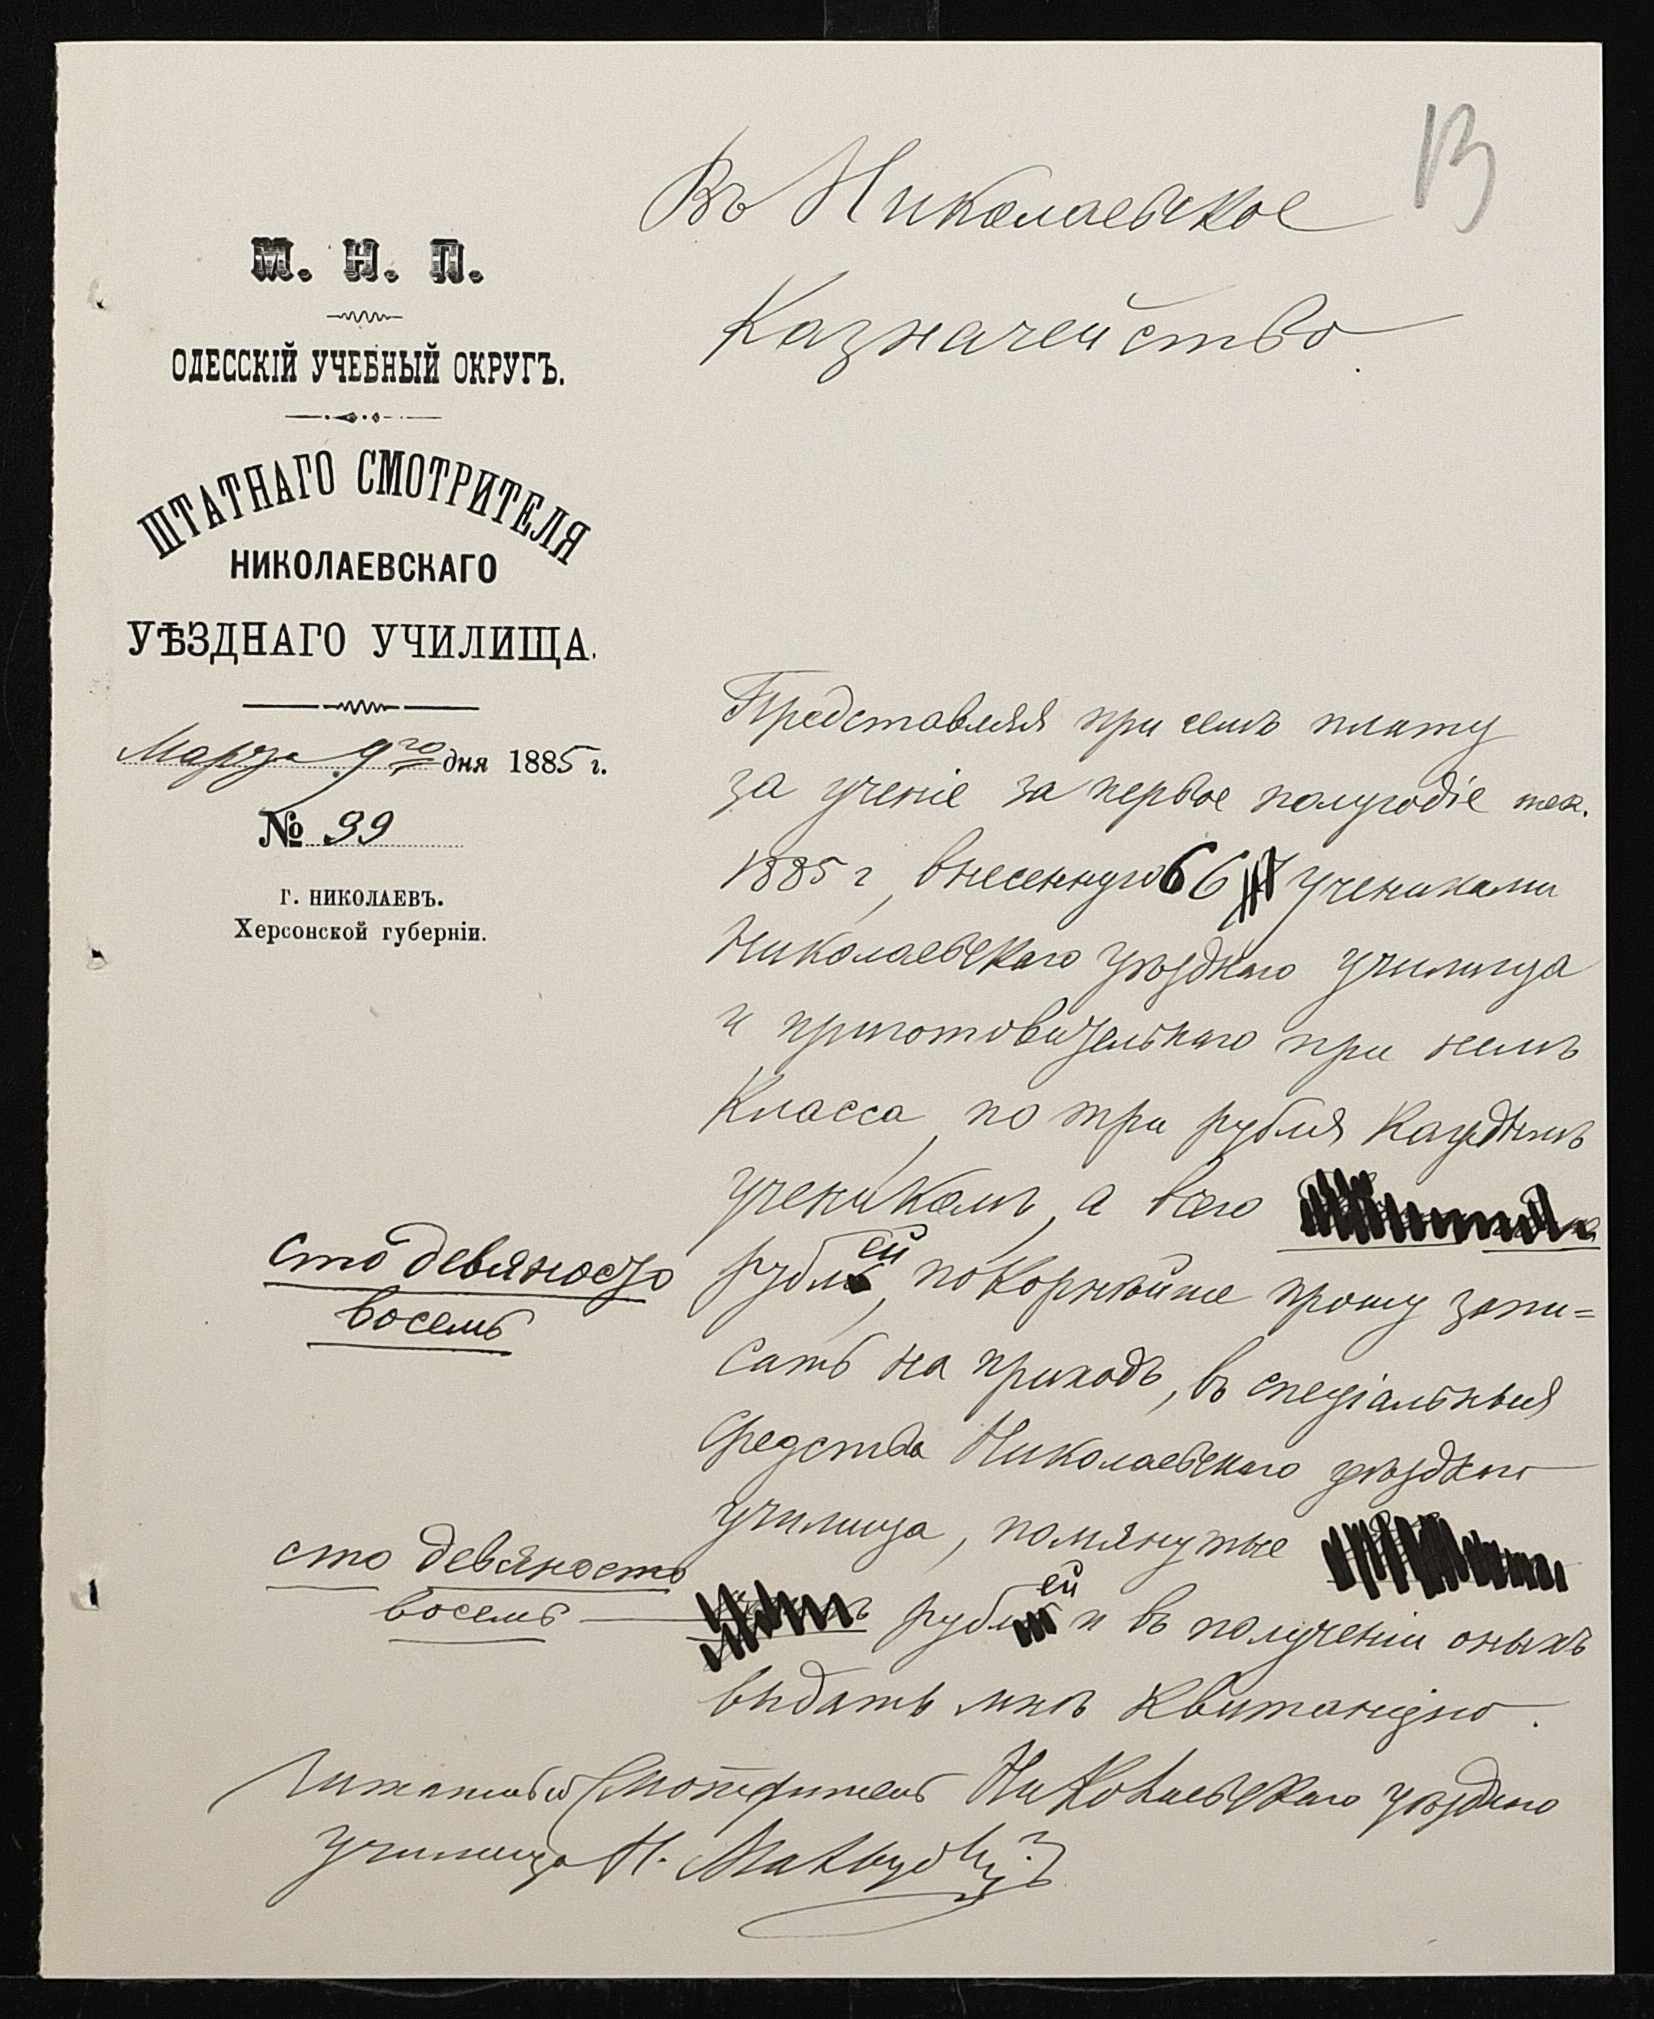 13
Въ Николаевское
Казначейство.
М. Н. П.
ОДЕССКІЙ УЧЕБНЫЙ ОКРУГЪ.
ШТАТНАГО СМОТРИТЕЛЯ
НИКОЛАЕВСКАГО
УѢЗДНАГО УЧИЛИЩА.
Марта 9го дня 1885 г.
№ 99
Г. НИКОЛАЕВЪ.
Херсонской губерніи.
Представляя при семъ плату
за ученіе за первое полугодіе тек.
1885 г, внесенную 66 учениками
Николаевскаго уѣзднаго училища
и приготовительнаго при немъ
класса, по три рубля каждымъ
ученикомъ, а всего
сто девяносто
восемь
рублей, покорнѣйше прошу запи=
сать на приходъ, въ спеціальныя
средства Николаевскаго уѣзднаго
училища, помянутые
сто девяносто
восемь
рублей и въ полученіи оныхъ
выдать мнѣ квитанцію.
Штатный Смотритель Николаевскаго уѣзднаго
училища Н.